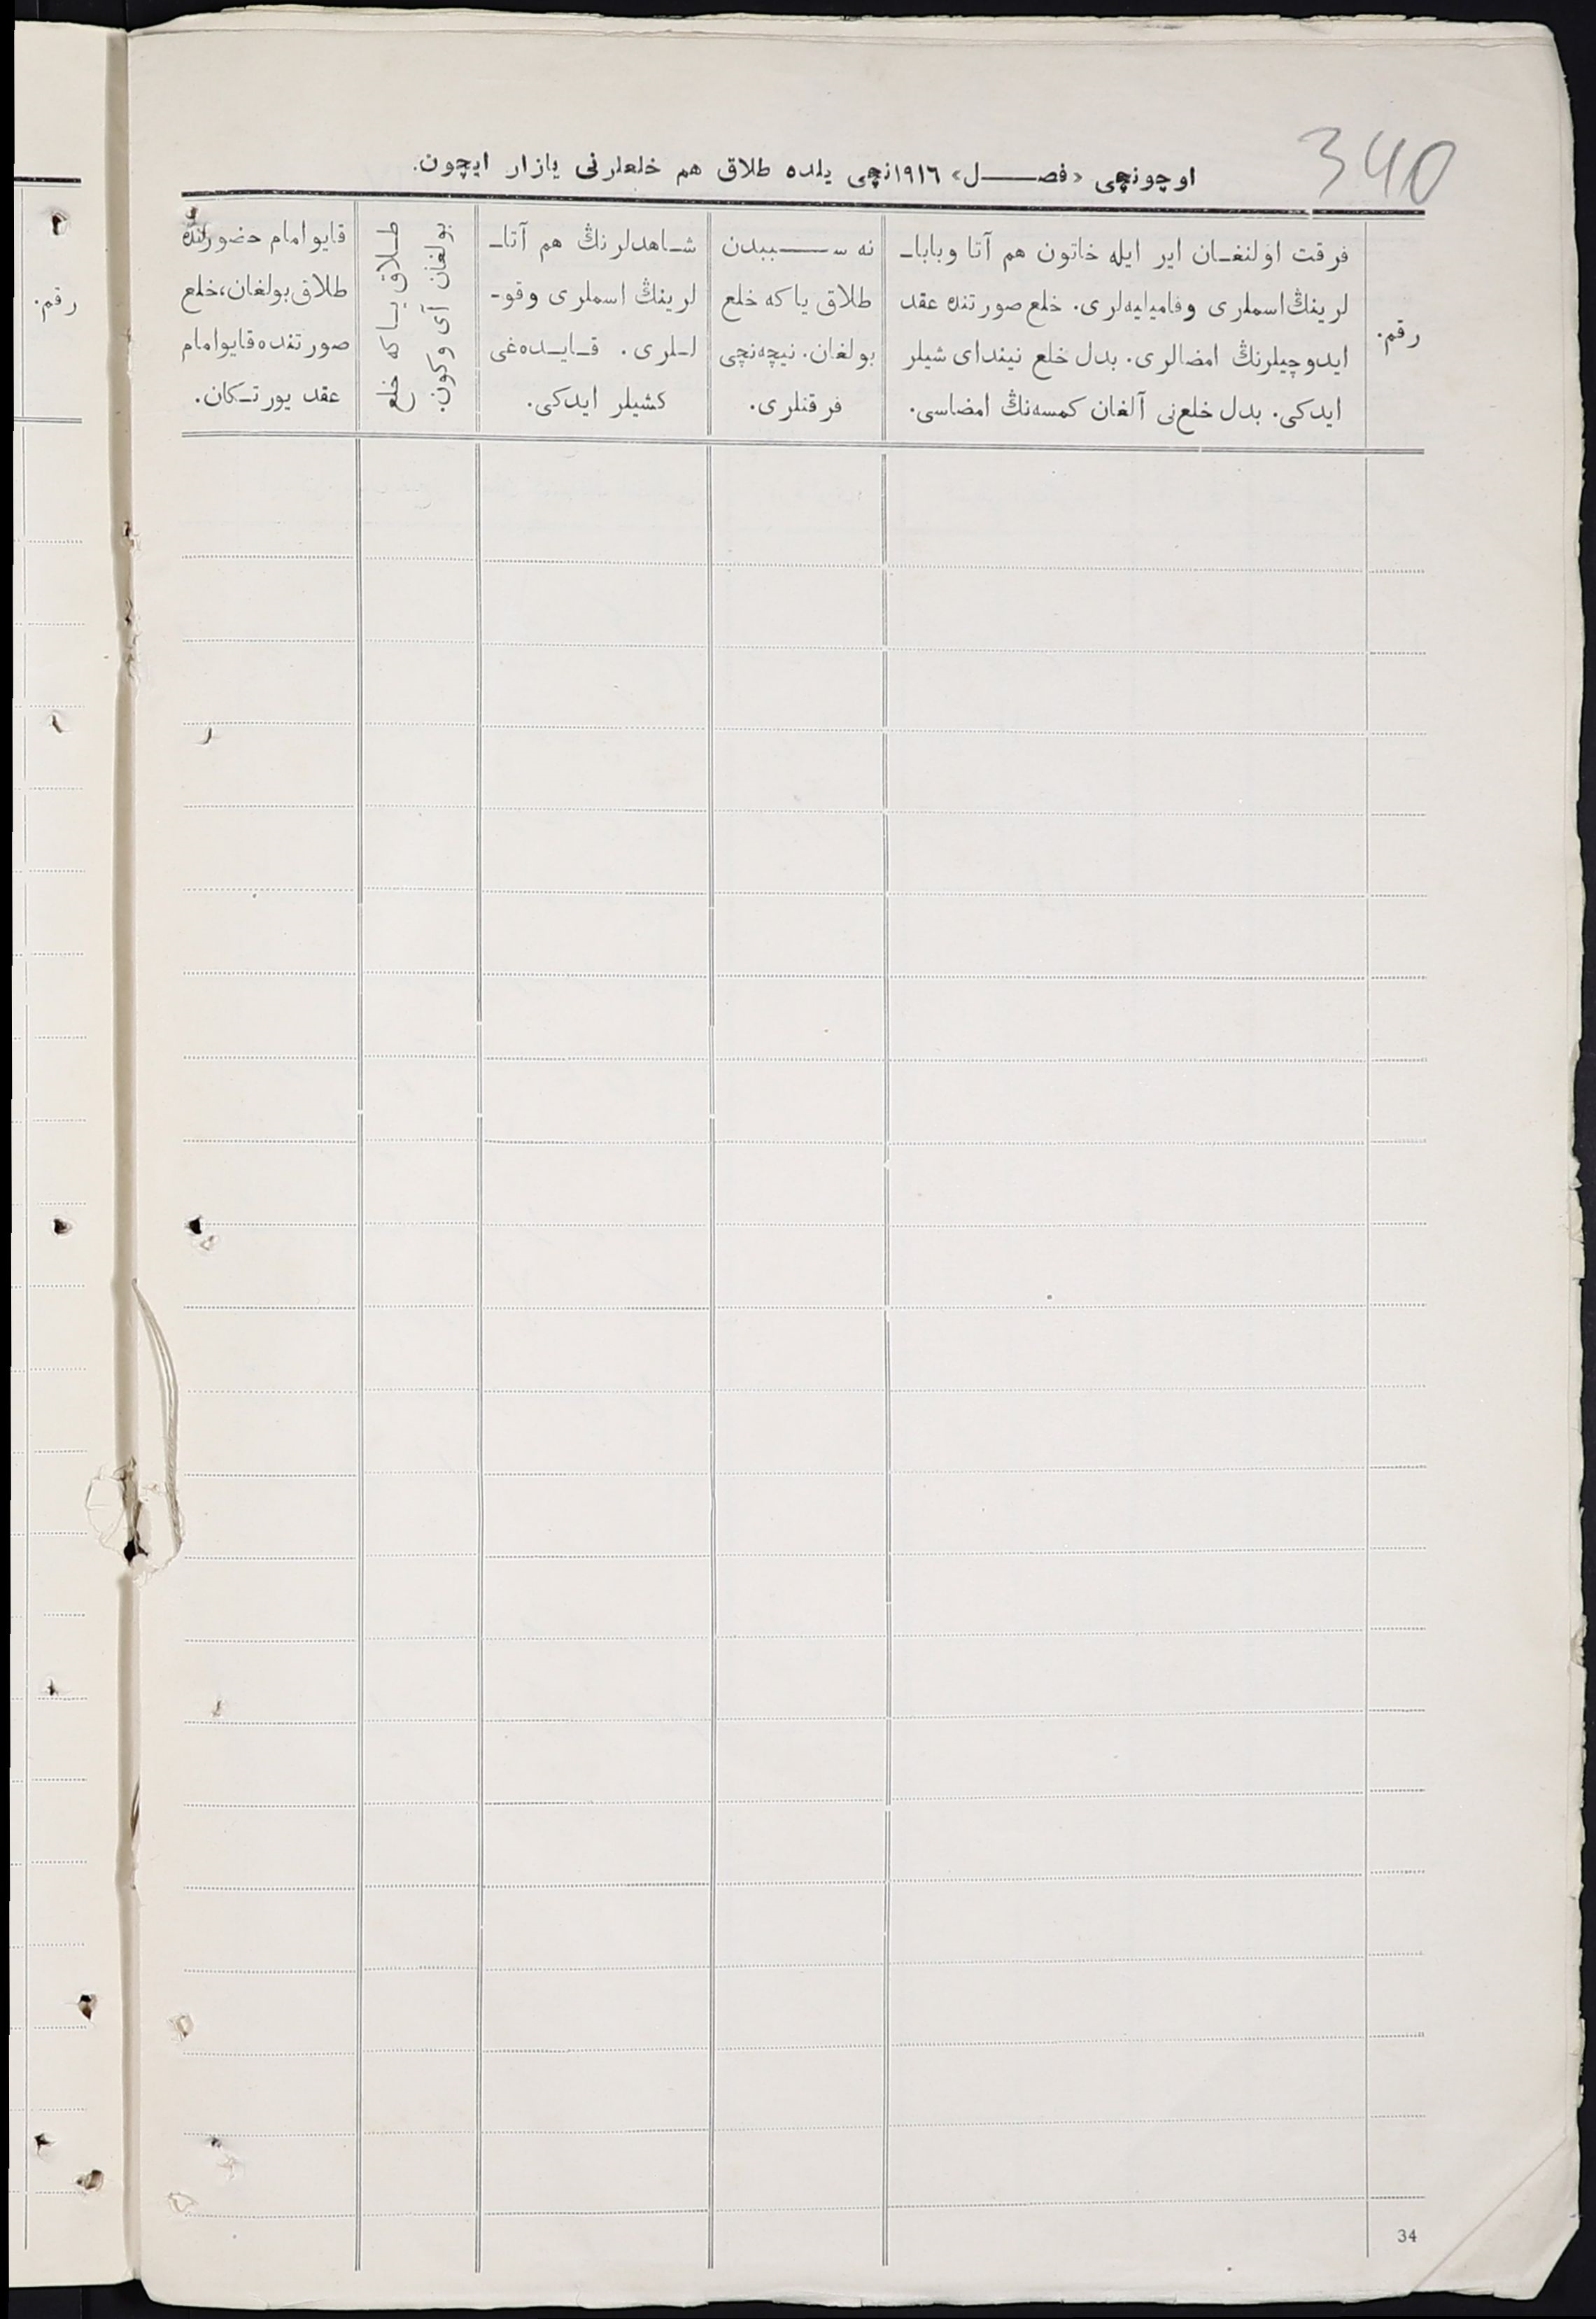 340
اوچونچی «فصـــــل» ١٩١٦نچی یلده طلاق هم خلعلرنی یازار ایچون.
رقم.
فرقت اولنغـان ایر ایله خاتون هم آتا وبابا-
لرینڭ اسملری وفامیلیه‌لری. خلع صورتنده عقد
ایدوچیلرنڭ امضالری. بدل خلع نیندای شیلر
ایدکی. بدل خلع‌نی آلغان کمسه‌نڭ امضاسی.
نه ســـــببدن
طلاق یا که خلع
بولغان. نیچه‌نچی
فرقتلری.
شـاهدلرنڭ هم آتا-
لرینڭ اسملری وقو-
لـلری. قـایـده‌غی
کشیلر ایدکی.
طـلاق یـا که خلع
بولغان آی وکون.
قایو امام حضورنده
طلاق بولغان، خلع
صورتنده قایو امام
عقد یورتـکان.
رقم.
34